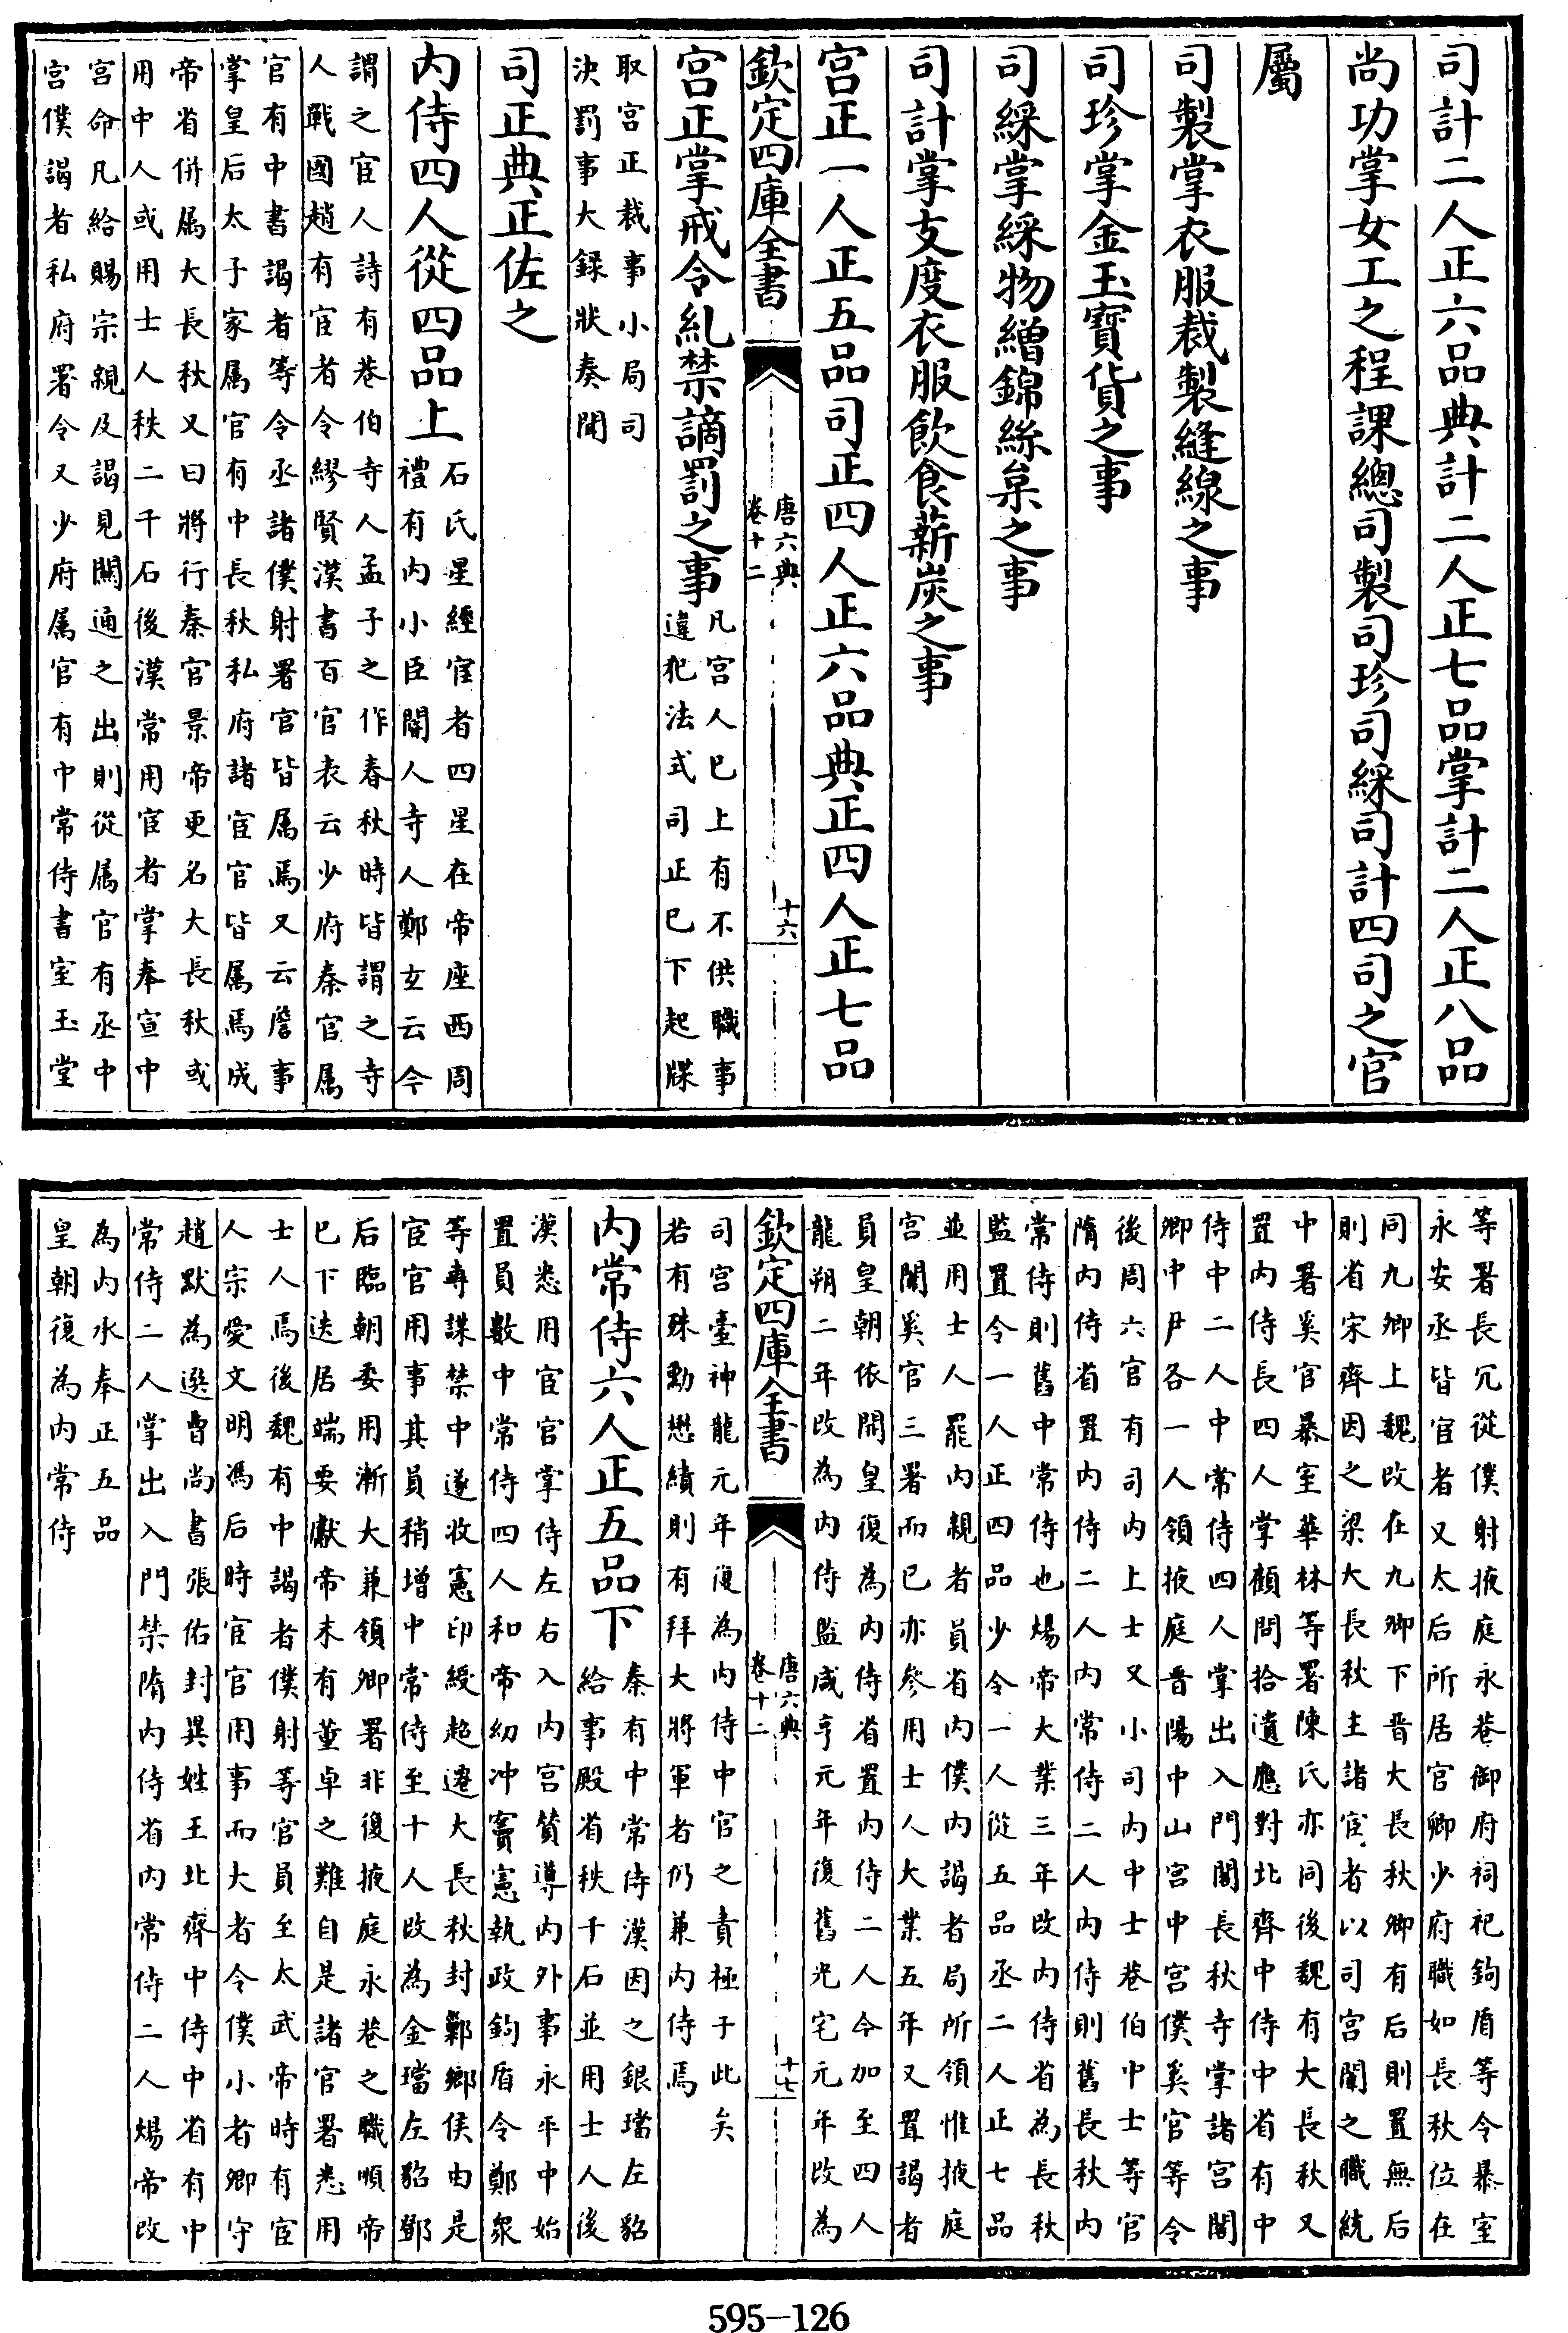 司計二人正六品典計二人正七品掌計二人正八品
尚功掌女工之程課總司製司珍司綵司計四司之官
屬
司製掌衣服裁製縫線之事
司珍掌金玉寶貨之事
司綵掌綵物繒錦絲枲之事
司計掌支度衣服飲食薪炭之事
宫正一人正五品司正四人正六品典正四人正七品
欽定四庫全書
唐六典
卷十二
十六
宫正掌戒令糺禁謫罰之事
凡宫人已上有不供職事
違犯法式司正已下起牒
取宫正裁事小局司
決罰事大録狀奏聞
司正典正佐之
内侍四人從四品上
石氏星經宦者四星在帝座西周
禮有内小臣閽人寺人鄭玄云今
謂之宦人詩有巷伯寺人孟子之作春秋時皆謂之寺
人戰國趙有宦者令繆賢漢書百官表云少府秦官属
官有中書謁者等令丞諸僕射署官皆属焉又云詹事
掌皇后太子家属官有中長秋私府諸宦官皆属焉成
帝省併属大長秋又曰將行秦官景帝更名大長秋或
用中人或用士人秩二千石後漢常用宦者掌奉宣中
宫命凡給賜宗親及謁見關通之出則從属官有丞中
宫僕謁者私府署令又少府属官有中常侍書室玉堂
等署長冗從僕射掖庭永巷御府祠祀鉤盾等令暴室
永安丞皆宦者又太后所居官卿少府職如長秋位在
同九卿上魏改在九卿下晋大長秋卿有后則置無后
則省宋齊因之梁大長秋主諸宦者以司宫闈之職統
中署奚官暴室華林等署陳氏亦同後魏有大長秋又
置内侍長四人掌顧問拾遺應對北齊中侍中省有中
侍中二人中常侍四人掌出入門閤長秋寺掌諸宫閤
卿中尹各一人領掖庭晋陽中山宫中宫僕奚官等令
後周六官有司内上士又小司内中士巷伯中士等官
隋内侍省置内侍二人内常侍二人内侍則舊長秋内
常侍則舊中常侍也煬帝大業三年改内侍省為長秋
監置令一人正四品少令一人從五品丞二人正七品
並用士人罷内親者員省内僕内謁者局所領惟掖庭
宫闈奚官三署而已亦參用士人大業五年又置謁者
員皇朝依開皇復為内侍省置内侍二人今加至四人
龍朔二年改為内侍監咸亨元年復舊光宅元年改為
欽定四庫全書
唐六典
卷十二
十七
司宫臺神龍元年復為内侍中官之貴極于此矣
若有殊勳懋績則有拜大將軍者仍兼内侍焉
内常侍六人正五品下
秦有中常侍漢因之銀璫左貂
給事殿省秩千石並用士人後
漢悉用宦官掌侍左右入内宫贊導内外事永平中始
置員數中常侍四人和帝幼冲竇憲執政鉤盾令鄭衆
等專謀禁中遂收憲印綬超遷大長秋封鄛鄉侯由是
宦官用事其員稍增中常侍至十人改為金璫左貂鄧
后臨朝委用漸大兼領卿署非復掖庭永巷之職順帝
已下迭居端要獻帝末有董卓之難自是諸官署悉用
士人焉後魏有中謁者僕射等官員至太武帝時有宦
人宗愛文明馮后時宦官用事而大者令僕小者卿守
趙默為選曹尚書張佑封異姓王北齊中侍中省有中
常侍二人掌出入門禁隋内侍省内常侍二人煬帝改
為内承奉正五品
皇朝復為内常侍
595-126